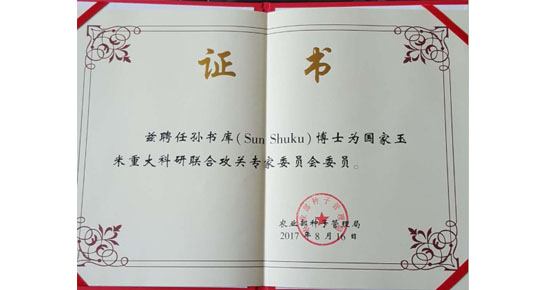 证书
兹聘任孙书库(Sun Shuku)博士为国家玉
米重大科研联合攻关专家委员会委员。
农业部种子管理局
2017年8月16日